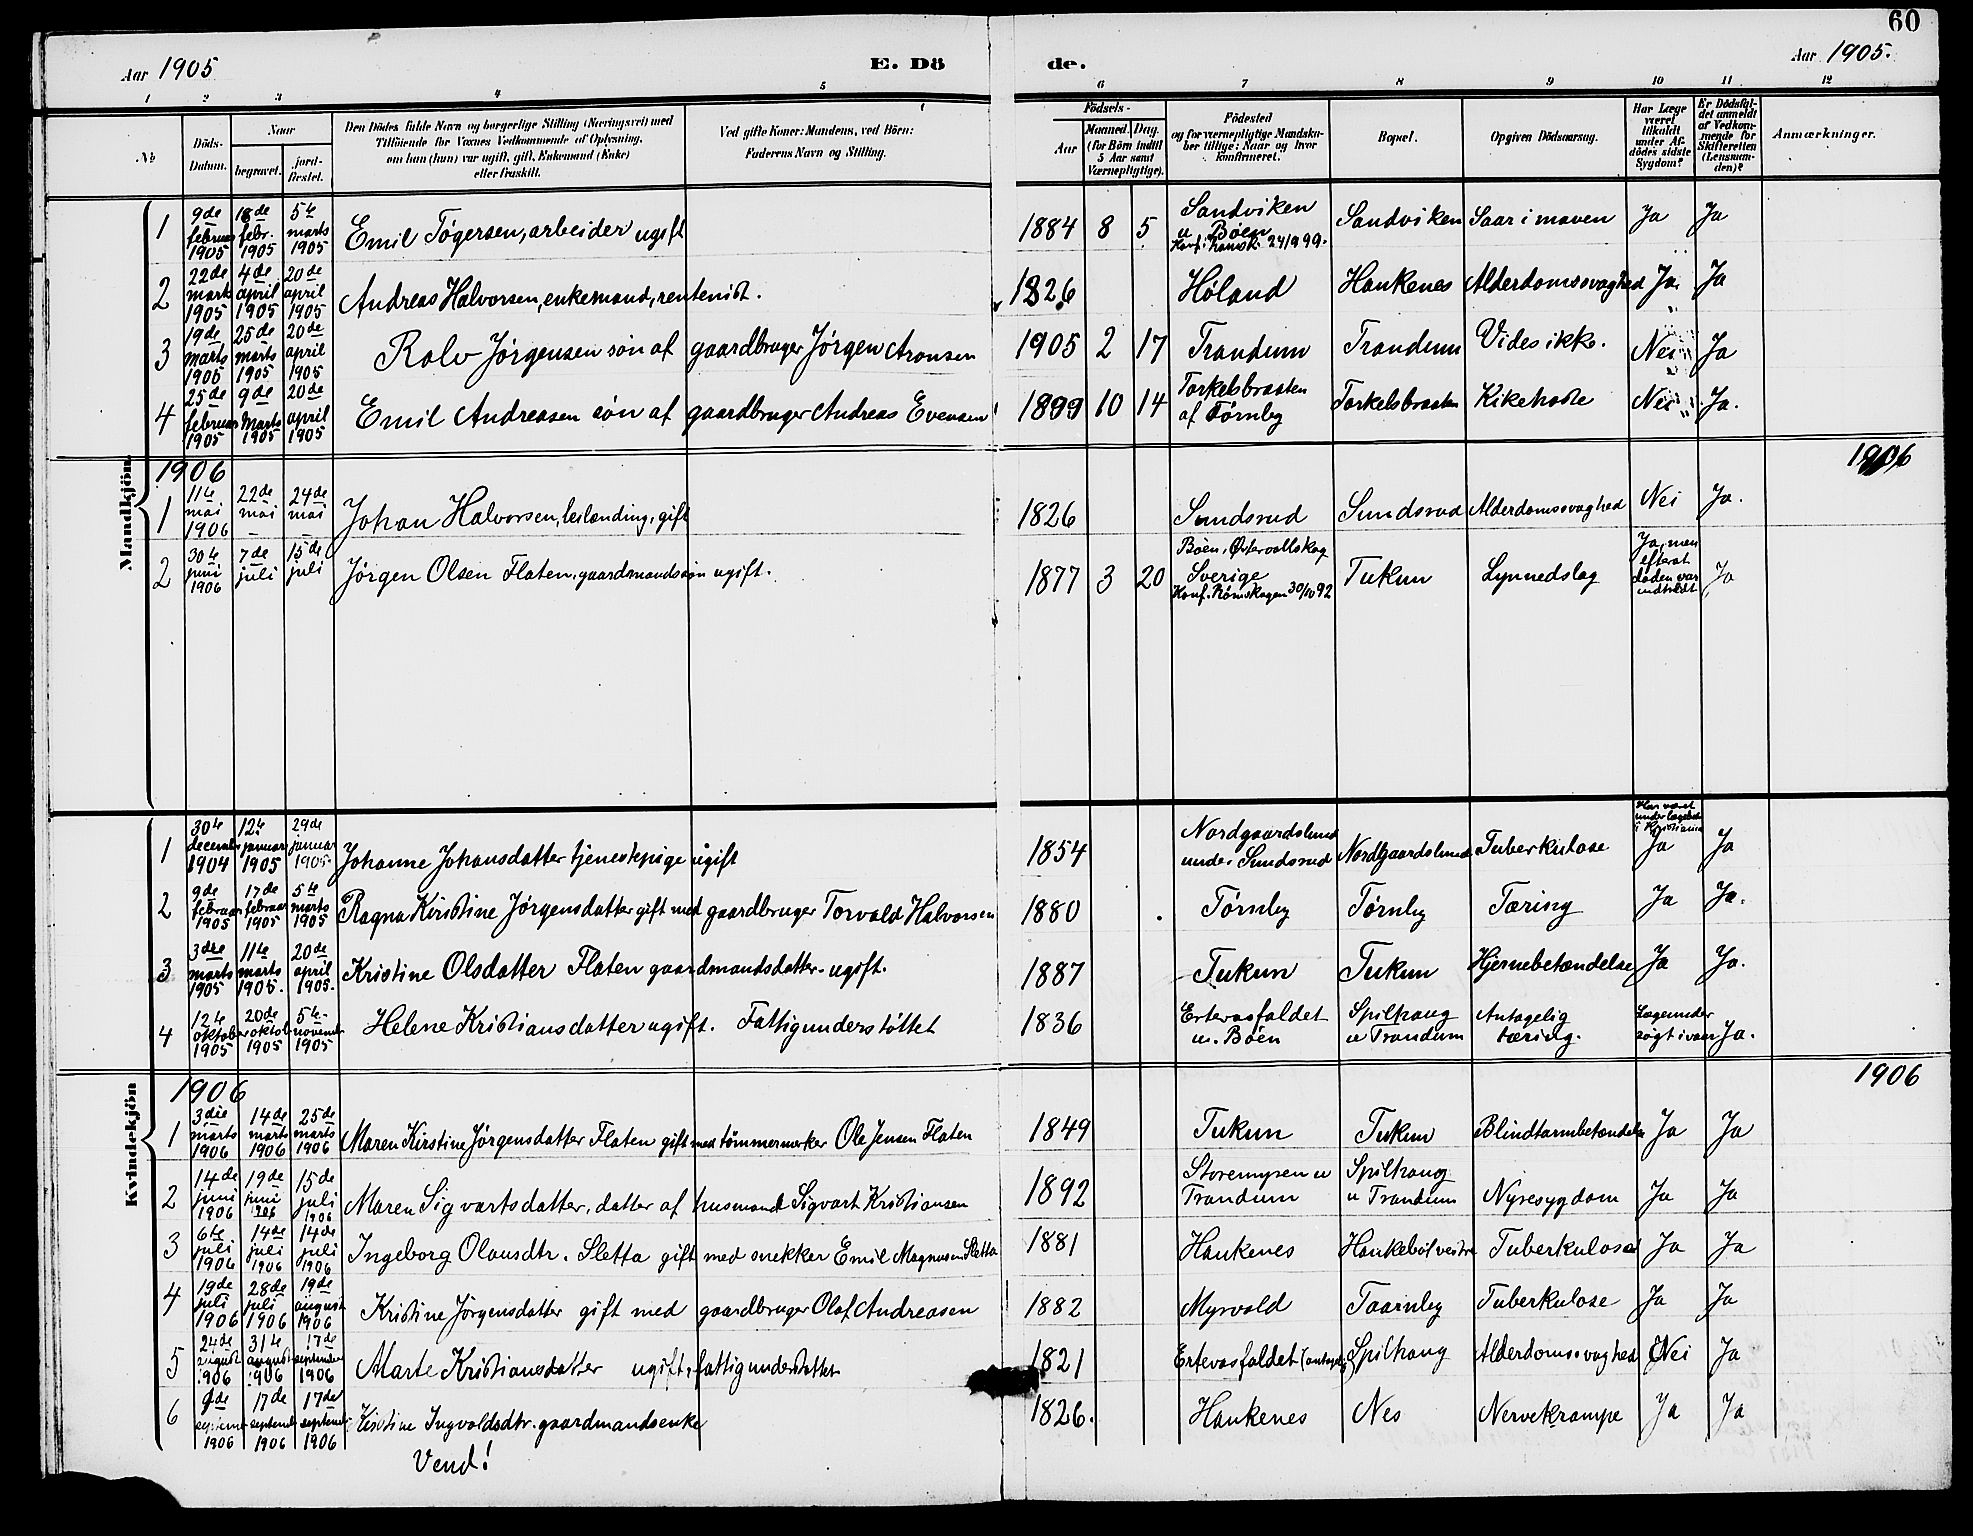 60
Aar 1905
E. Dö
de.
Aar 1905.
1 2 3 4 5 6 7 8 9 10 11 12
№
Döds-Datum.
Naar
begravet.
jord-fæstet.
Den Dödes fulde Navn og borgerlige Stilling (Næringsvei) med
Tilföiende for Voxnes Vedkommende af Oplysning,
om han (hun) var ugift, gift, Enkemand (Enke)
eller fraskilt.
Ved gifte Koner: Mandens, ved Börn:
Faderens Navn og Stilling.
Födsels-
Aar
Maaned. Dag.
(for Börn indtil
5 Aar samt
Værnepligtige).
Födested
og for værnepligtige Mandska-
ber tillige: Naar og hvor
konfirmeret.
Bopæl.
Opgiven Dödsaarsag.
Har Læge
været
tilkaldt
under Af-
dödes sidste
Sygdom?
Er Dödsfal-
det anmeldt
af Vedkom-
mende for
Skifteretten
(Lensman-
den)?
Anmærkninger.
Mandkjön.
1 9de februar 1905 18de febr. 1905 5te marts 1905 Emil Tøgersen, arbeider ugift 1884 8 5 Sandviken u Bøen Konf. i Rømsk. 24/9 99. Sandviken Saar i maven Ja Ja
2 22de marts 1905 4de april 1905 20de april 1905 Andreas Halvorsen, enkemand, rentenist. 1826 Høland Haukenes Alderdomssvaghed Ja Ja
3 19de marts 1905 25de marts 1905 20de april 1905 Rolv Jørgensen søn af gaardbruger Jørgen Aronsen 1905 2 17 Trandum Trandum Vides ikke. Nei Ja
4 25de februar 1905 9de marts 1905 20de april 1905 Emil Andreasen søn af gaardbruger Andreas Evensen 1899 10 14 Torkelsbraaten af Tørnby Torkelsbraaten Kikehoste Nei Ja.
1906
1906
1 11te mai 1906 22de mai 24de mai Johan Halvorsen, leilending, gift 1826 Sundsrud Sundsrud Alderdomssvaghed Nei Ja.
2 30te juni 1906 7de juli 15de juli Jørgen Olsen Flaten, gaardmandssøn ugift. 1877 3 20 Bøen, Østervallskog Sverige Konf. Rømskogen 30/10 92 Tukun Lynnedslag Ja, men efterat døden var indtrådt Ja
Kvindekjön
1 30te december 1904 12te januar 1905 29de januar 1905 Johanne Johansdatter tjenestepige ugift 1854 Nordgaardslund under Sundsrud Nordgaardslund Tuberkulose Har været under lægebeh. i Kristiania Ja Ja
2 9de februar 1905 17de februar 1905 5te marts 1905 Ragna Kristine Jørgensdatter gift med gaardbruger Torvald Halvorsen 1880 Tørnby Tørnby Tæring Ja Ja.
3 3die marts 1905 11te marts 1905. 20de april 1905. Kristine Olsdatter Flaten gaardmandsdatter. ugift. 1887 Tukun Tukun Hjernebetændelse Ja Ja.
4 12te oktober 1905 20de oktob 1905 5te november 1905 Helene Kristiansdatter ugift. Fattigunderstøttet 1836 Ertevasfaldet u. Bøen Spilhaug u Trandum Antagelig tæring. Lægeunder søgt ivaar Ja.
1906
1906
1 3die marts 1906 14de marts 1906 25de marts 1906 Maren Kirstine Jørgensdatter Flaten gift med tømmermerker Ole Jensen Flaten 1849 Tukun Tukun Blindtarmbetændelse Ja Ja
2 14de juni 1906 19de juni 1906 15de juli 1906 Maren Sigvartsdatter, datter af husmand Sigvart Kristiansen 1892 Storemyren u Trandum Spilhaug u Trandum Nyresygdom Ja Ja
3 6te juli 1906 14de juli 1906 14de juli 1906 Ingeborg Olausdtr. Sletta gift med snekker Emil Magnusen Sletta 1881 Haukenes Haukebøl vestre Tuberkulose Ja Ja
4 19de juli 1906 28de juli 1906 19de august 1906 Kristine Jørgensdatter gift med gaardbruger Olaf Andreasen 1882 Myrvold Taarnby Tuberkulose Ja Ja
5 24de august 1906 31te august 1906 17de september 1906 Marte Kristiansdatter ugift, fattigunderstøttet 1821 Ertevasfaldet Spilhaug Alderdomssvaghed Nei Ja
6 9de september 1906 17de september 1906 17de september 1906 Kirstine Ingvoldsdtr. gaardmandsenke 1826. Haukenes Nes Nervekrampe Ja Ja
Vend!